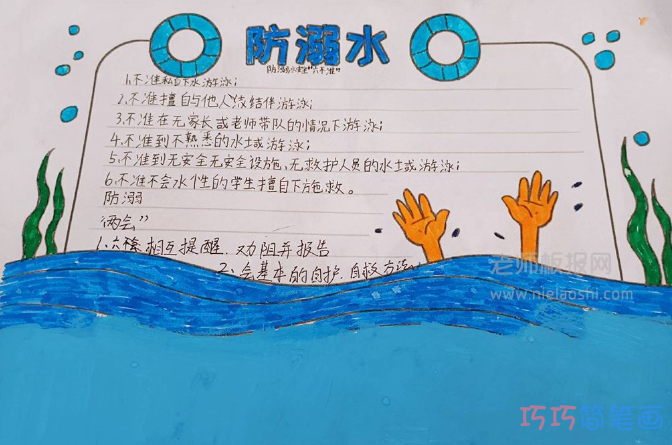 防溺水
防溺水安全"六不准"
1.不准私自下水游泳；
2.不准擅自与他人结伴游泳；
3.不准在无家长或老师带队的情况下游泳；
4.不准到不熟悉的水土或游泳；
5.不准到无安全无安全设施、无救护人员的水土或游泳；
6.不准不会水性的学生擅自下施救。
防溺
"两会"
1、相互提醒、劝阻并报告
2、会基本的自护、自救方法
老师板报网
www.nielaoshi.com
巧巧简笔画